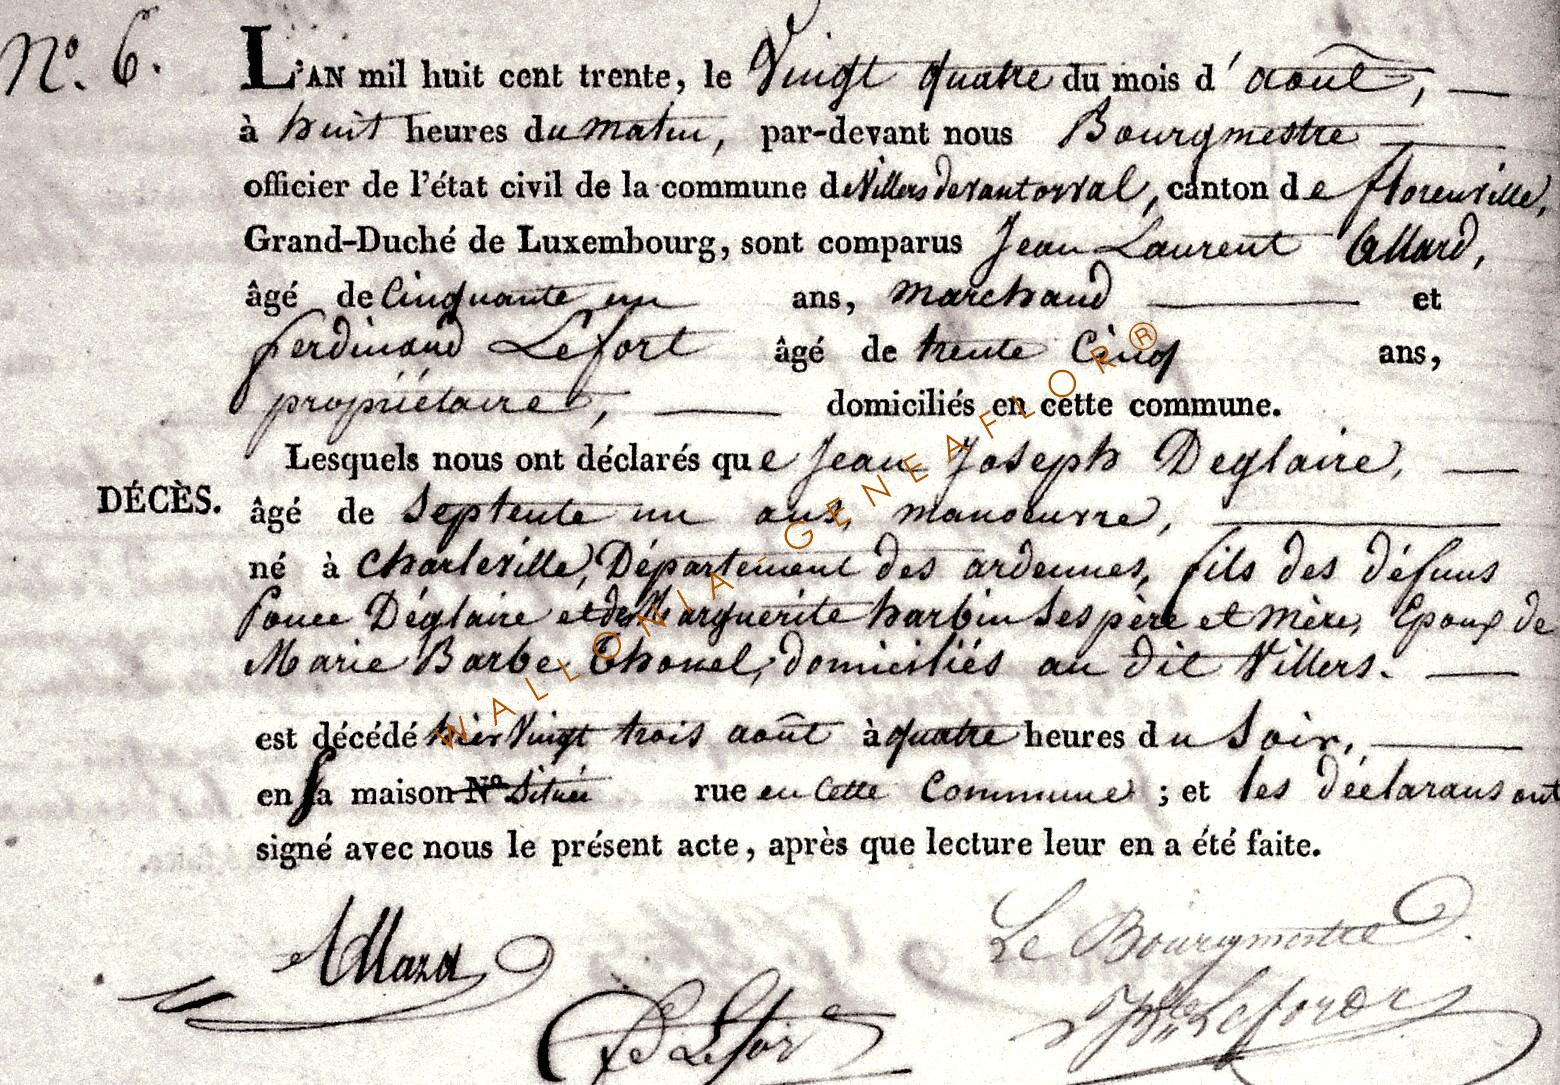 N.° 6.
L'AN mil huit cent trente, le Vingt quatre du mois d'août,
à huit heures du matin, par-devant nous Bourgmestre
officier de l'état civil de la commune de Villers devant orval, canton de florenville,
Grand-Duché de Luxembourg, sont comparus Jean Laurent Allard,
âgé de Cinquante un ans, marchand et
ferdinand Lefort âgé de trente Cinq ans,
propriétaire, domiciliés en cette commune.
Lesquels nous ont déclarés que Jean Joseph Deglaire,
DÉCÈS.
âgé de Septente un ans, manoeuvre,
né à Charleville, Département des ardennes, fils des défuns
Ponce Déglaire et de Marguerite harbin Ses père et mère, Epoux de
Marie Barbe Thonel, domiciliés au dit Villers.
est décédé hier Vingt trois août à quatre heures du Soir,
en sa maison N° Située rue en Cette Commune ; et les déclarans ont
signé avec nous le présent acte, après que lecture leur en a été faite.
Allard
Le Bourgmestre.
Lefort
WALLONIA-GENEAFLOR®